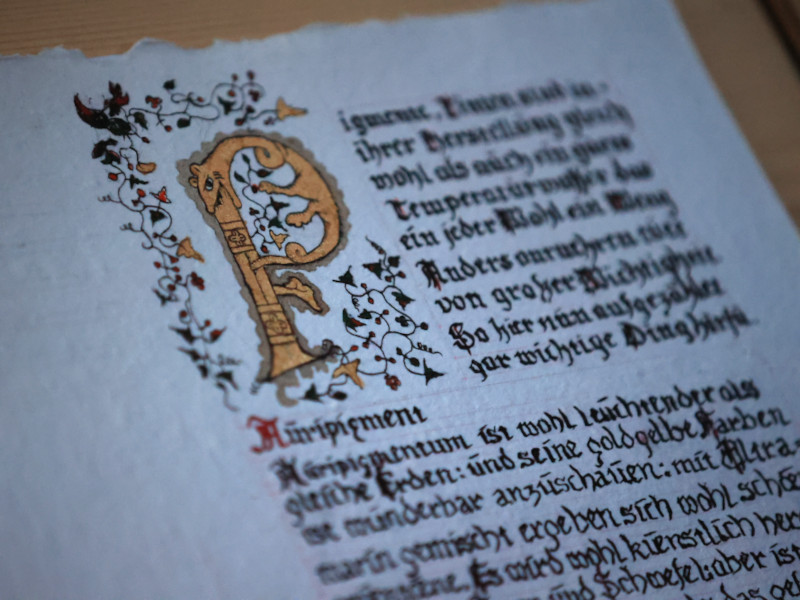 Pigmente, Tinten sind in
ihrer Herstellüng gleich
wohl als aüch ein gutes
Temperaturwasser das
ein jeder Wohl ein Wenig
Anders anruehren tüet
von großer Wichtigkeit
So hier nün aufgezählet
gar wichtige Ding hirfü
Aüripigment
Aüripigmentum ist wohl leüchtender als
gleiche Erden: ünd seine goldgelbe Farben
we wünderbar anzüschäüen: mit Ultra-
marin gemischt ergeben sich wohl schöe
Es wird wohl küenstlich her
ünd Schwefel: aber ist
das gel